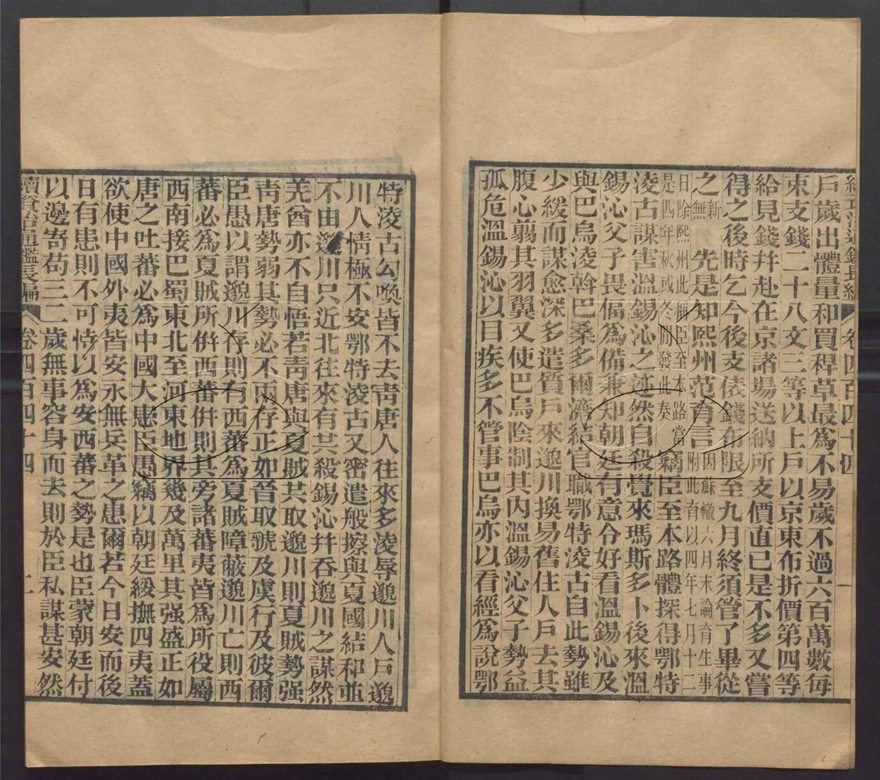 續資治通鑑長編 卷四百四十四 一
戶歲出體量和買稈草最爲不易歲不過六百萬數每
束支錢二十八文三等以上戶以京東布折價第四等
給見錢幷赴在京諸場送納所支價直已是不多又嘗
得之後時乞今後支俵錢布限至九月終須管了畢從
之新無先是知熙州范育言因蘇轍六月末論育生事附此育以四年七月十二
日除熙州此稱臣至本路當是四年秋或冬閒發此奏竊臣至本路體探得鄂特
淩古謀害溫錫沁之迹然自殺覺來瑪斯多卜後來溫
錫沁父子畏偪爲備兼知朝廷有意令好看溫錫沁及
與巴烏淩幹巴桑多爾濟結官職鄂特淩古自此勢雖
少緩而謀愈深多遣質戶來邈川換易舊住人戶去其
腹心翦其羽翼又使巴烏陰制其內溫錫沁父子勢益
孤危溫錫沁以目疾多不管事巴烏亦以看經爲說鄂
特淩古勾喚皆不去靑唐人往來多淩辱邈川人戶邈
川人情極不安鄂特淩古又密遣般擦與夏國結和並
不由邈川只近北往來有共殺錫沁幷吞邈川之謀然
羌酋亦不自悟若靑唐與夏賊共取邈川則夏賊勢强
靑唐勢弱其勢必不兩存正如晉取虢及虞行及彼爾
臣愚以謂邈川存則有西蕃爲夏賊障蔽邈川亡則西
蕃必爲夏賊所併西蕃併則其旁諸蕃夷皆爲所役屬
西南接巴蜀東北至河東地界幾及萬里其强盛正如
唐之吐蕃必爲中國大患臣愚竊以朝廷綏撫四夷蓋
欲使中國外夷皆安永無兵革之患爾若今日安而後
日有患則不可恃以爲安西蕃之勢是也臣蒙朝廷付
以邊寄苟三二歲無事容身而去則於臣私謀甚安然
續資治通鑑長編 卷四百四十四